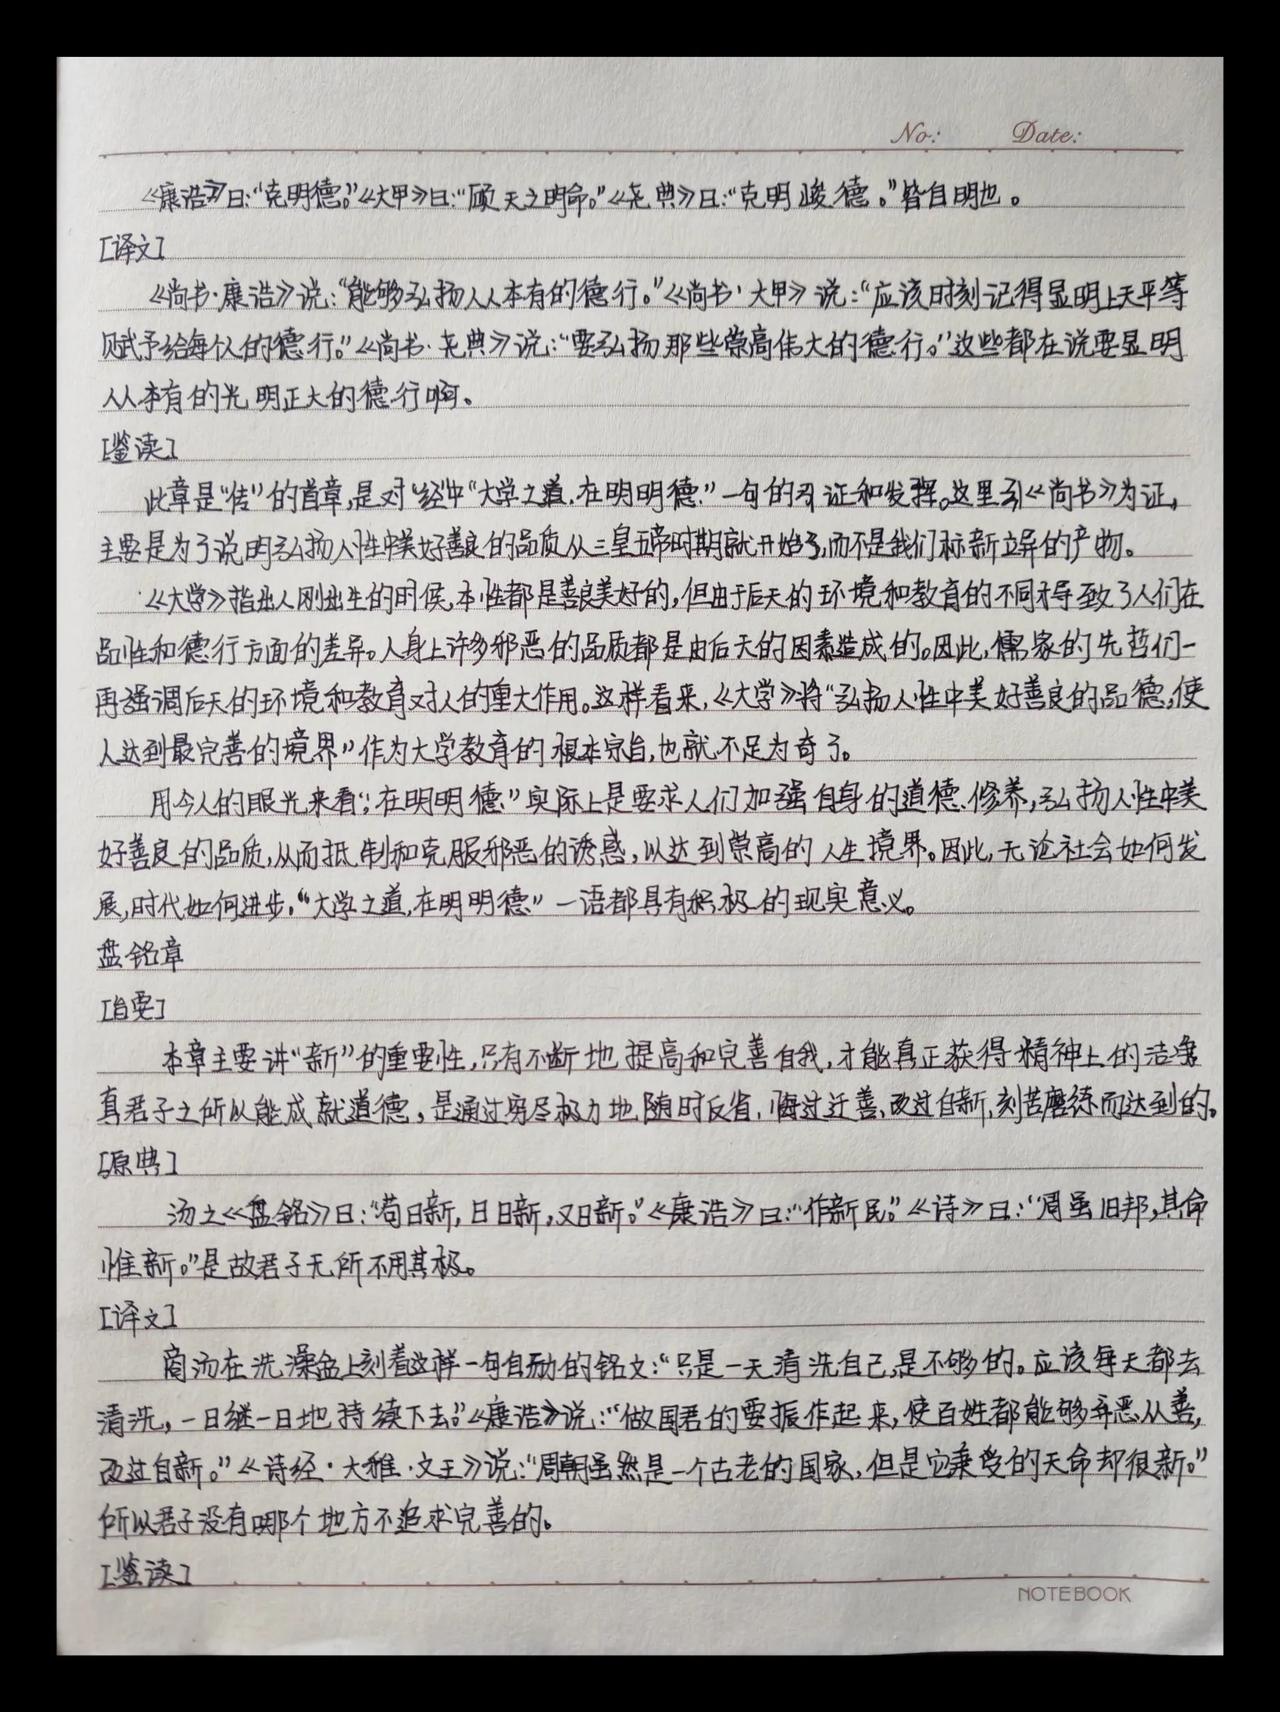 No: Date:
《康浩》曰:“克明德。”《大甲》曰:“顾天之明命。”《尧典》曰:“克明峻德。”皆自明也。
[译文]
《尚书·康浩》说:“能够弘扬人人本有的德行。”《尚书·大甲》说:“应该时刻记得显明上天平等
赋予给每个人的德行。”《尚书·尧典》说:“要弘扬那些崇高伟大的德行。”这些都在说要显明
人人本有的光明正大的德行啊。
[鉴读]
此章是“传”的首章,是对“经中“大学之道,在明明德”一句的引证和发挥。这里引《尚书》为证,
主要是为了说明弘扬人性中美好善良的品质从三皇五帝时期就开始了,而不是我们标新立异的产物。
《大学》指出人刚出生的时候,本性都是善良美好的,但由于后天的环境和教育的不同才导致了人们在
品性和德行方面的差异。人身上许多邪恶的品质都是由后天的因素造成的。因此,儒家的先哲们一
再强调后天的环境和教育对人的重大作用。这样看来,《大学》将“弘扬人性中美好善良的品德,使
人达到最完善的境界”作为大学教育的根本宗旨,也就不足为奇了。
用今人的眼光来看,“在明明德”实际上是要求人们加强自身的道德修养,弘扬人性中美
好善良的品质,从而抵制和克服邪恶的诱惑,以达到崇高的人生境界。因此,无论社会如何发
展,时代如何进步,“大学之道,在明明德”一语都具有积极的现实意义。
盘铭章
[旨要]
本章主要讲“新”的重要性,只有不断地提高和完善自我,才能真正获得精神上的洁净
真君子之所以能成就道德,是通过穷尽极力地随时反省,悔过迁善,改过自新,刻苦磨练而达到的。
[原典]
汤之《盘铭》曰:“苟日新,日日新,又日新。”《康浩》曰:“作新民。”《诗》曰:“周虽旧邦,其命
惟新。”是故君子无所不用其极。
[译文]
商汤在洗澡盆上刻着这样一句自励的铭文:“只是一天清洗自己,是不够的。应该每天都去
清洗,一日继一日地持续下去。”《康浩》说:“做国君的要振作起来,使百姓都能够弃恶从善,
改过自新。”《诗经·大雅·文王》说:“周朝虽然是一个古老的国家,但是它秉受的天命却很新。”
所以君子没有哪个地方不追求完善的。
[鉴读]
NOTEBOOK